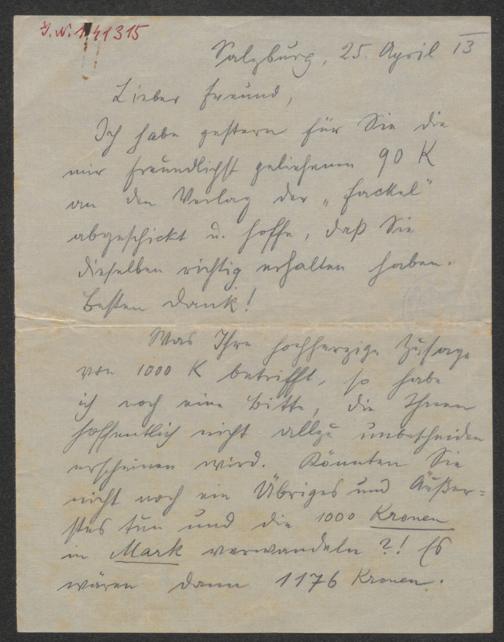 J.N. 141315
Salzburg, 25. April 13
Lieber Freund,
Ich habe gestern für Sie die
mir freundlichst geliehenen 90 K
an den Verlag der „Fackel“
abgeschickt u. hoffe, daß Sie
dieselben richtig erhalten haben.
Besten Dank!
Was Ihre hochherzige Zusage
von 1000 K betrifft, so habe
ich noch eine Bitte, die Ihnen
hoffentlich nicht allzu unbescheiden
erscheinen wird. Könnten Sie
nicht noch ein Übriges und Äußer=
stes tun und die 1000 Kronen
in Mark verwandeln?! Es
wären dann 1176 Kronen.